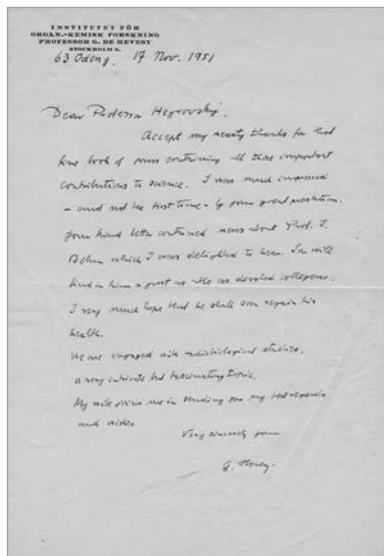 INSTITUTET FÖR
ORGAN.-KEMISK FORSKNING
PROFESSOR G. DE HEVESY
STOCKHOLM
63 Odeng. 17 Nov. 1951
Dear Professor Heyrovský,
Accept my hearty thanks for that
fine book of yours containing all those important
contributions to science. I was much impressed
- and not the first time - by your great
Your kind letter contained news about Prof. J.
Böhm which I was delighted to hear. You will
find in him a great as well as devoted collegue.
I very much hope that he shall soon regain his
health.
We are engaged with radiobiological studies,
a very intricate but fascinating topic.
My wife joins me in sending you my best regards
and wishes
Very sincerely yours
G. Hevesy.